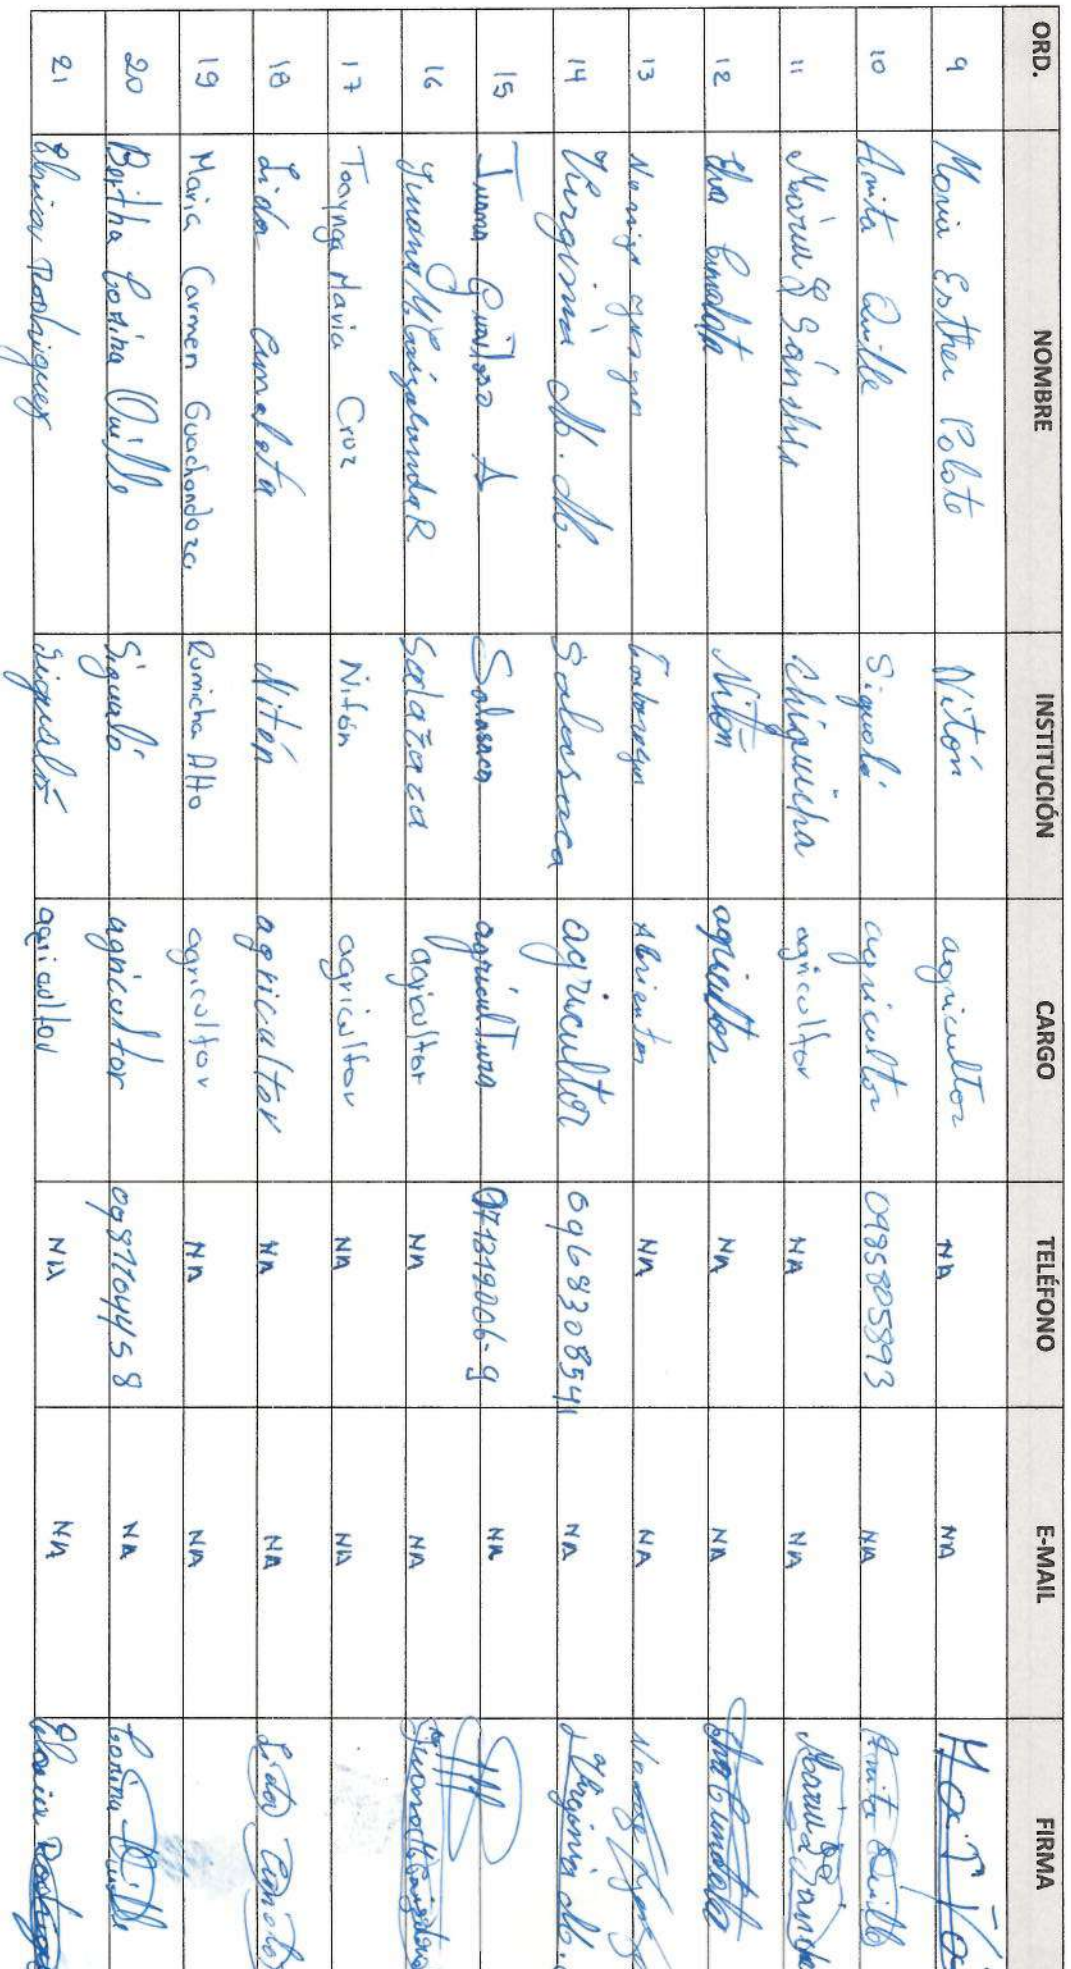 ORD. NOMBRE INSTITUCIÓN CARGO TELÉFONO E-MAIL FIRMA
9 Maria Esther Poloto Nitón agricultor NA NA
10 Anita Quille Sigualó agricultor 0985805893 NA Anita Quille
11 Sánchez Chiquicha agricultor NA NA
12 Cunalata Nitón agricultor NA NA Cunalata
13 NA NA
14 Virginia M. M. Salasaca agricultor 0968308541 NA Virginia M.
15 Juana A Salasaca agricultura 071319006-9 NA
16 Juana agricultor NA NA
17 Toaynga Maria Cruz Nitón agricultor NA NA
18 Lida Cunalata Nitón agricultor NA NA Lida
19 Maria Carmen Guachandoza Rumicha Alto agricultor NA NA
20 Bertha Corina Quille Sigualó agricultor 0987704458 NA Corina Quille
21 Rodriguez Sigualó agricultor NA NA